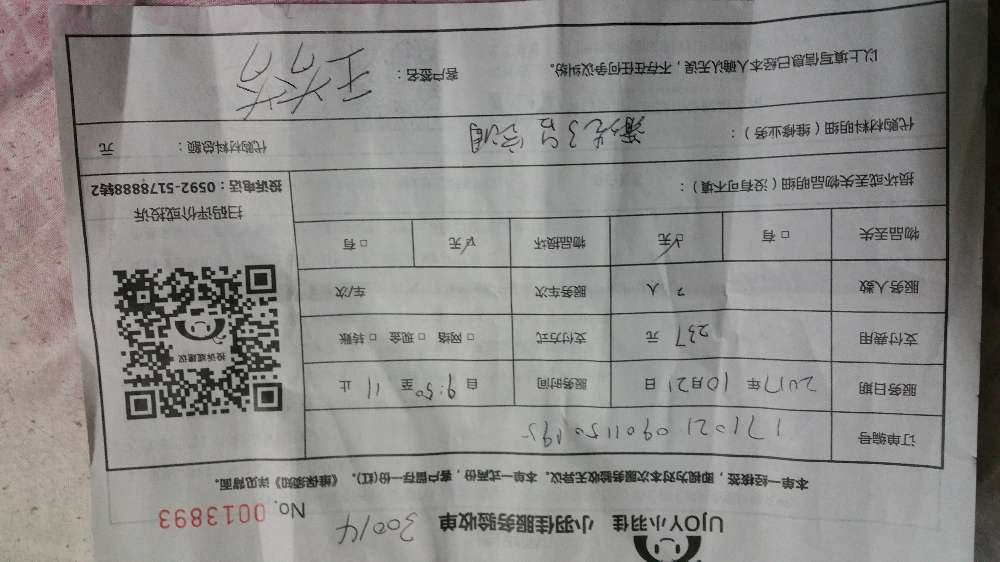 UJOY小羽佳 小羽佳服务验收单 30014 No. 0013893
本单一经核签，即视为对本次服务验收无异议。本单一式两份，客户留存一份(红)。《维保须知》详见背面。
订单编号 1710210901150195
服务日期 2017年10月21日 服务时间 自9:50至11止
支付费用 237元 支付方式 □网络 □现金 □转账
服务人数 人 服务车次 车/次
物品丢失 □有 ☑无 物品损坏 ☑无 □有
损坏或丢失物品明细（没有可不填）：
投诉或建议
扫码评价或投诉
投诉电话：0592-5178888转2
代购材料明细（维修业务）： 代购材料总额： 元
以上填写信息已经本人确认无误，不存在任何争议纠纷。 客户签名：